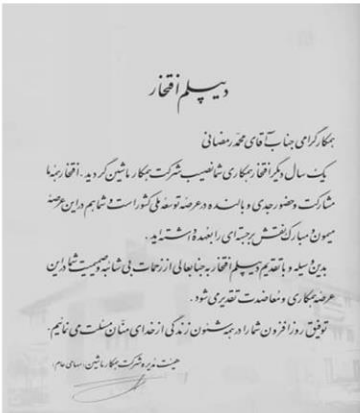 دیپلم افتخار
همکار گرامی جناب آقای محمد رمضانی
یک سال دیگر افتخار همکاری شما نصیب شرکت همکار ماشین گردید. افتخار همه ما
مشارکت و حضور جدی و بالنده در عرصه توسعه ملی کشور است و شما هم در این عرصه
میمون و مبارک نقش برجسته ای را بعهده داشته اید.
بدین وسیله و با تقدیم دیپلم افتخار به جنابعالی از زحمات بی شائبه و صمیمیت شما در این
عرصه همکاری و معاضدت تقدیر می شود.
توفیق روزافزون شما را در همه شئون زندگی از خدای منان مسئلت می نمائیم.
هیئت مدیره شرکت همکار ماشین (سهامی عام)